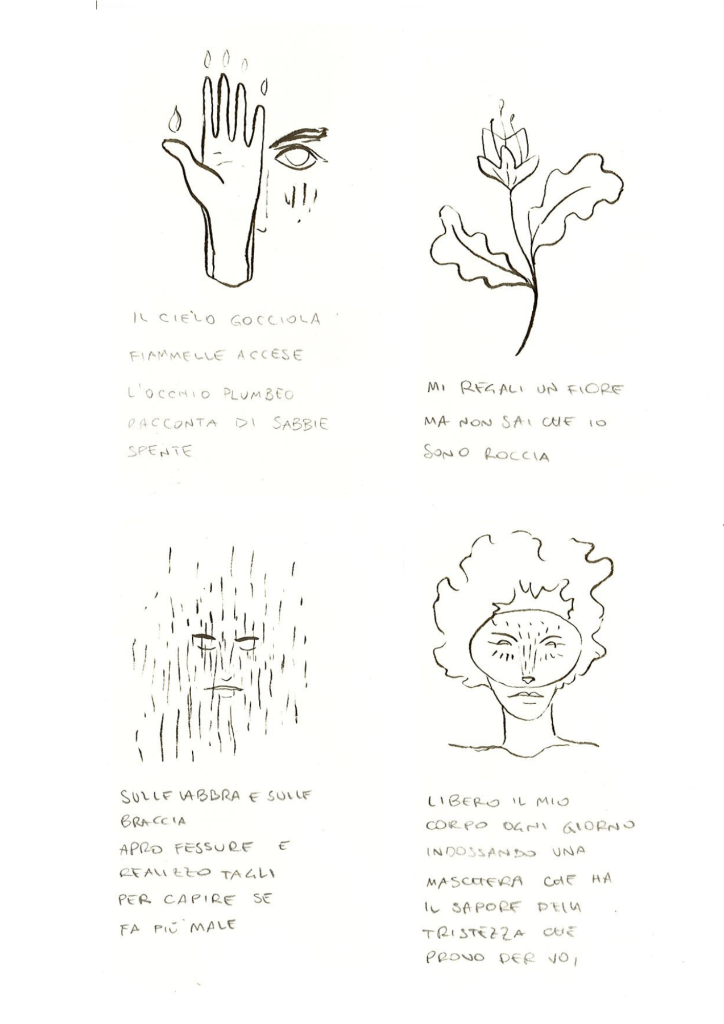 IL CIELO GOCCIOLA
FIAMMELLE ACCESE
L'OCCHIO PLUMBEO
RACCONTA DI SABBIE
SPENTE
MI REGALI UN FIORE
MA NON SAI CHE IO
SONO ROCCIA
SULLE LABBRA E SULLE
BRACCIA
APRO FESSURE E
REALIZZO TAGLI
PER CAPIRE SE
FA PIÙ MALE
LIBERO IL MIO
CORPO OGNI GIORNO
INDOSSANDO UNA
MASCHERA CHE HA
IL SAPORE DELLA
TRISTEZZA CHE
PROVO PER VOI